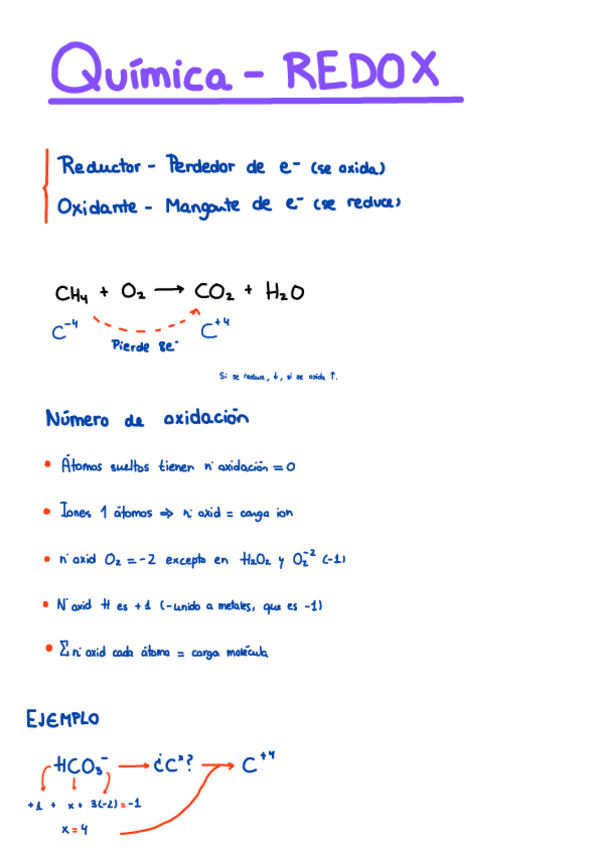 Química - REDOX
Reductor - Perdedor de e⁻ (se oxida)
Oxidante - Mangante de e⁻ (se reduce)
CH₄ + O₂ → CO₂ + H₂O
C⁻⁴ C⁺⁴
Pierde 8e⁻
Si se reduce, ↓, si se oxida ↑.
Número de oxidación
• Átomos sueltos tienen nº oxidación = 0
• Iones 1 átomos ⇒ nº oxid = carga ion
• nº oxid O₂ = -2 excepto en H₂O₂ y O₂⁻² (-1)
• Nº oxid H es +1 (-unido a metales, que es -1)
• Σ nº oxid cada átomo = carga molécula
EJEMPLO
HCO₃⁻ → ¿Cˣ? → C⁺⁴
+1 + x + 3(-2) = -1
x = 4